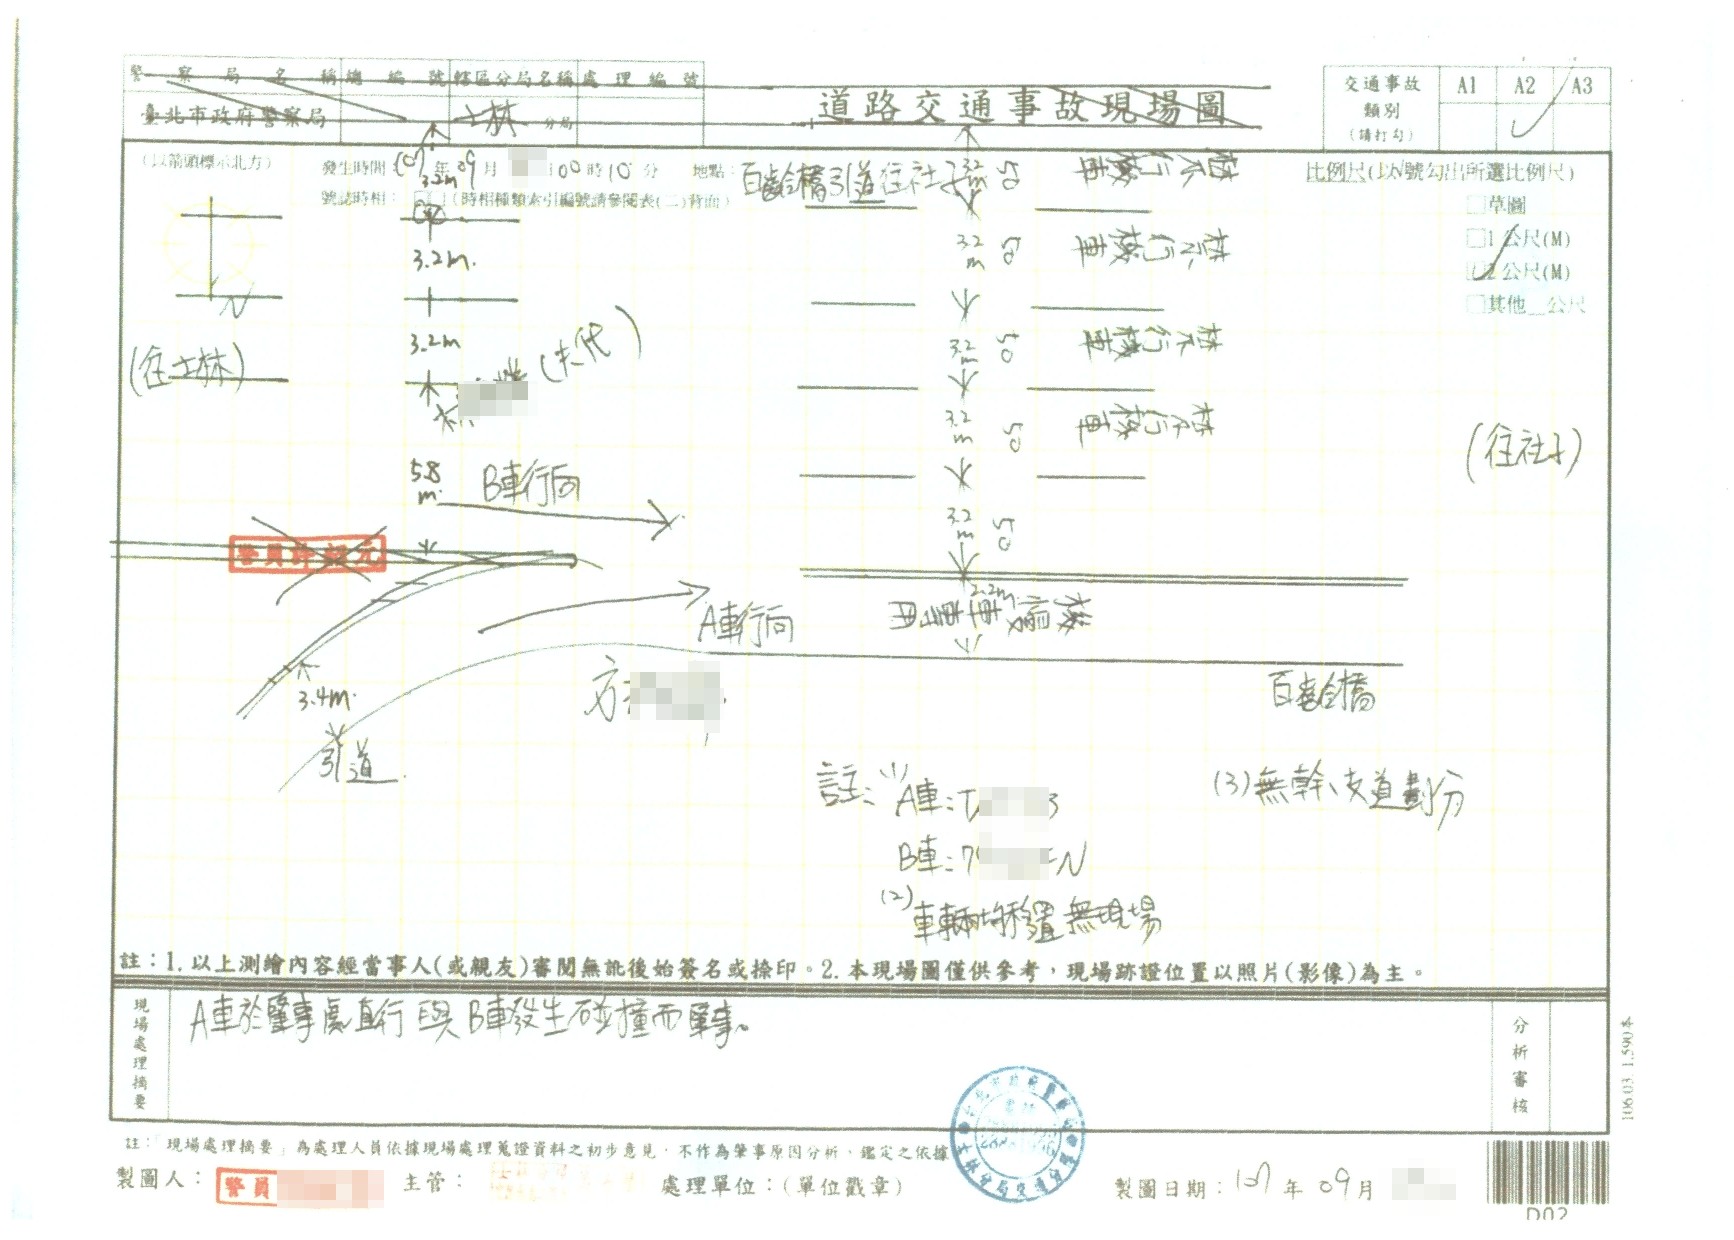 警察局名稱 總編號 轄區分局名稱 處理編號
臺北市政府警察局 士林 分局
道路交通事故現場圖
交通事故類別 (請打勾) A1 A2 A3
(以箭頭標示北方)
發生時間 107年09月 00時10分 地點：百齡橋引道往社子
號誌時相： (時相種類索引編號請參閱表(二)背面)
比例尺(以√號勾出所選比例尺)
□草圖
□1公尺(M)
□2公尺(M)
□其他__公尺
N
3.2m
3.2m.
3.2m
5.8
m.
3.2
m
50
禁行機車
3.2
m
50
禁行機車
3.2
m
50
禁行機車
3.2
m
50
禁行機車
3.2
m
50
(往士林)
(夫代)
(往社子)
B車行向
A車行向
2.2m.
3.4m.
引道
方
百齡橋
註：(1) A車：
B車： N
(2) 車輛均移置無現場
(3) 無幹、支道劃分
註：1.以上測繪內容經當事人(或親友)審閱無訛後始簽名或捺印。2.本現場圖僅供參考，現場跡證位置以照片(影像)為主。
現場處理摘要
A車於肇事處直行與B車發生碰撞而肇事。
分析審核
106.03 1,590本
註：「現場處理摘要」為處理人員依據現場處理蒐證資料之初步意見，不作為肇事原因分析、鑑定之依據
製圖人： 警員 主管： 處理單位：(單位戳章) 製圖日期：107年09月
D02